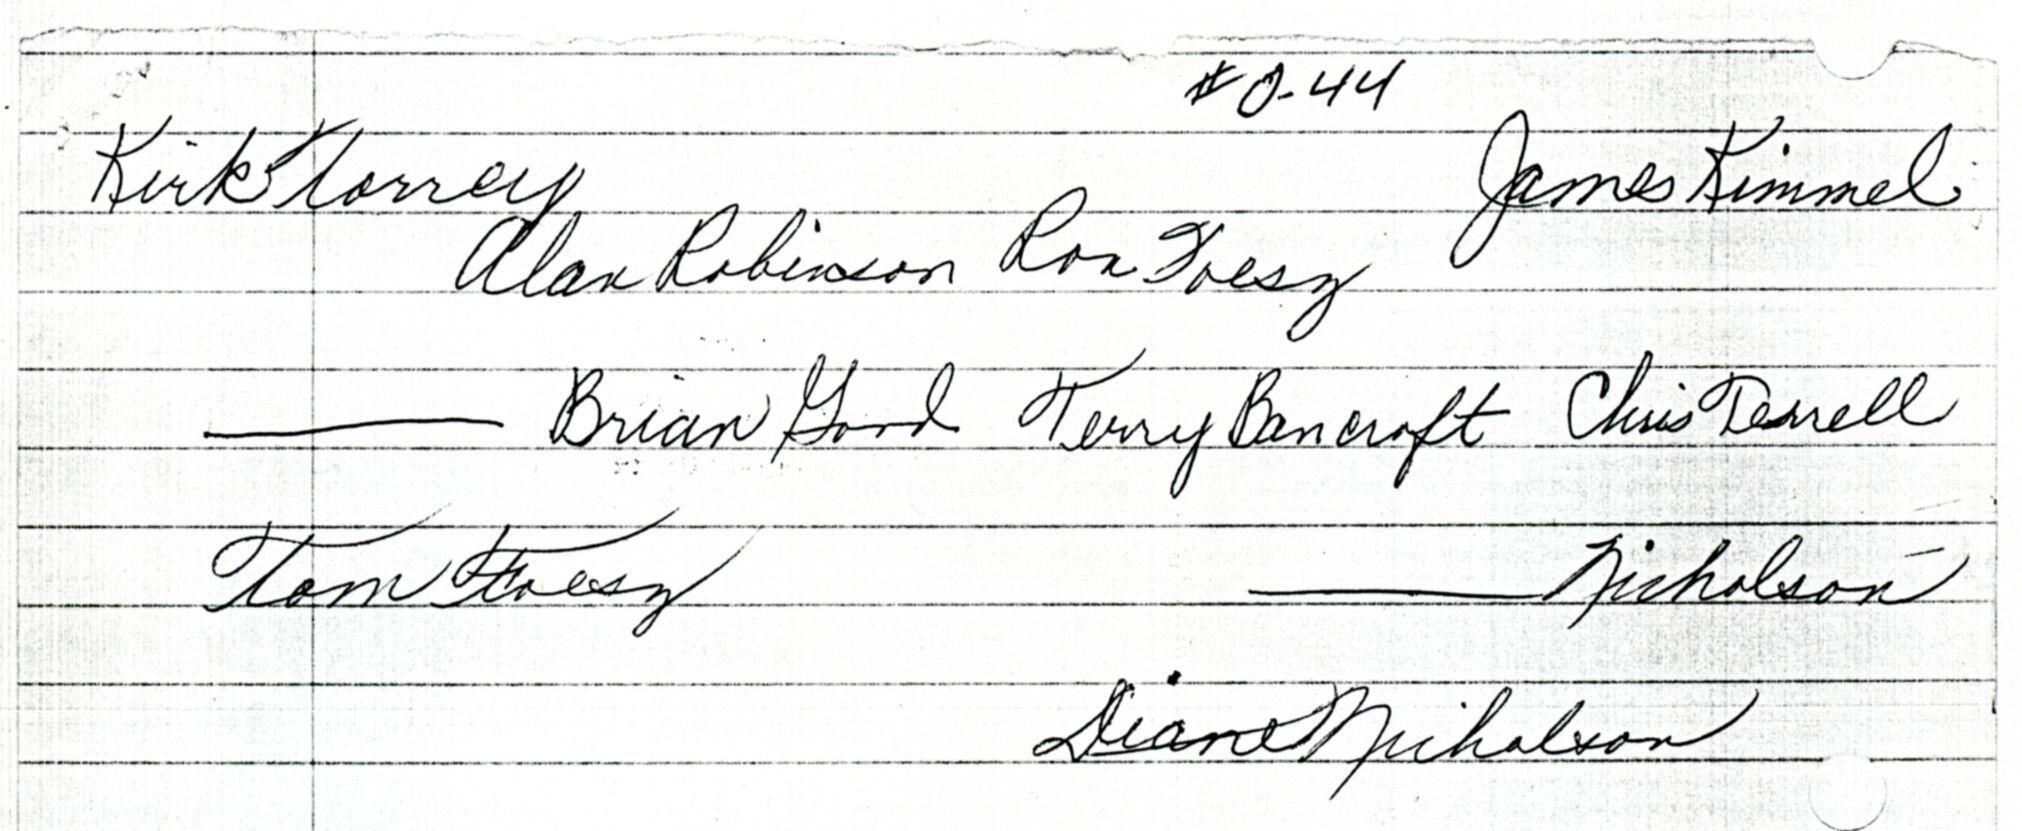 #0-44
Kirk Torrey James Kimmel
Alan Robinson Ron Foesy
Brian Gord Terry Bancroft Chris Terrell
Tom Foesy Nicholson
Diane Nicholson